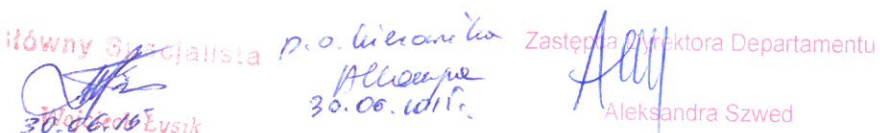 Główny Specjalista
30.06.15 Wojciech Łysik
p.o. kierownika
30.06.2015r.
Zastępca Dyrektora Departamentu
Aleksandra Szwed